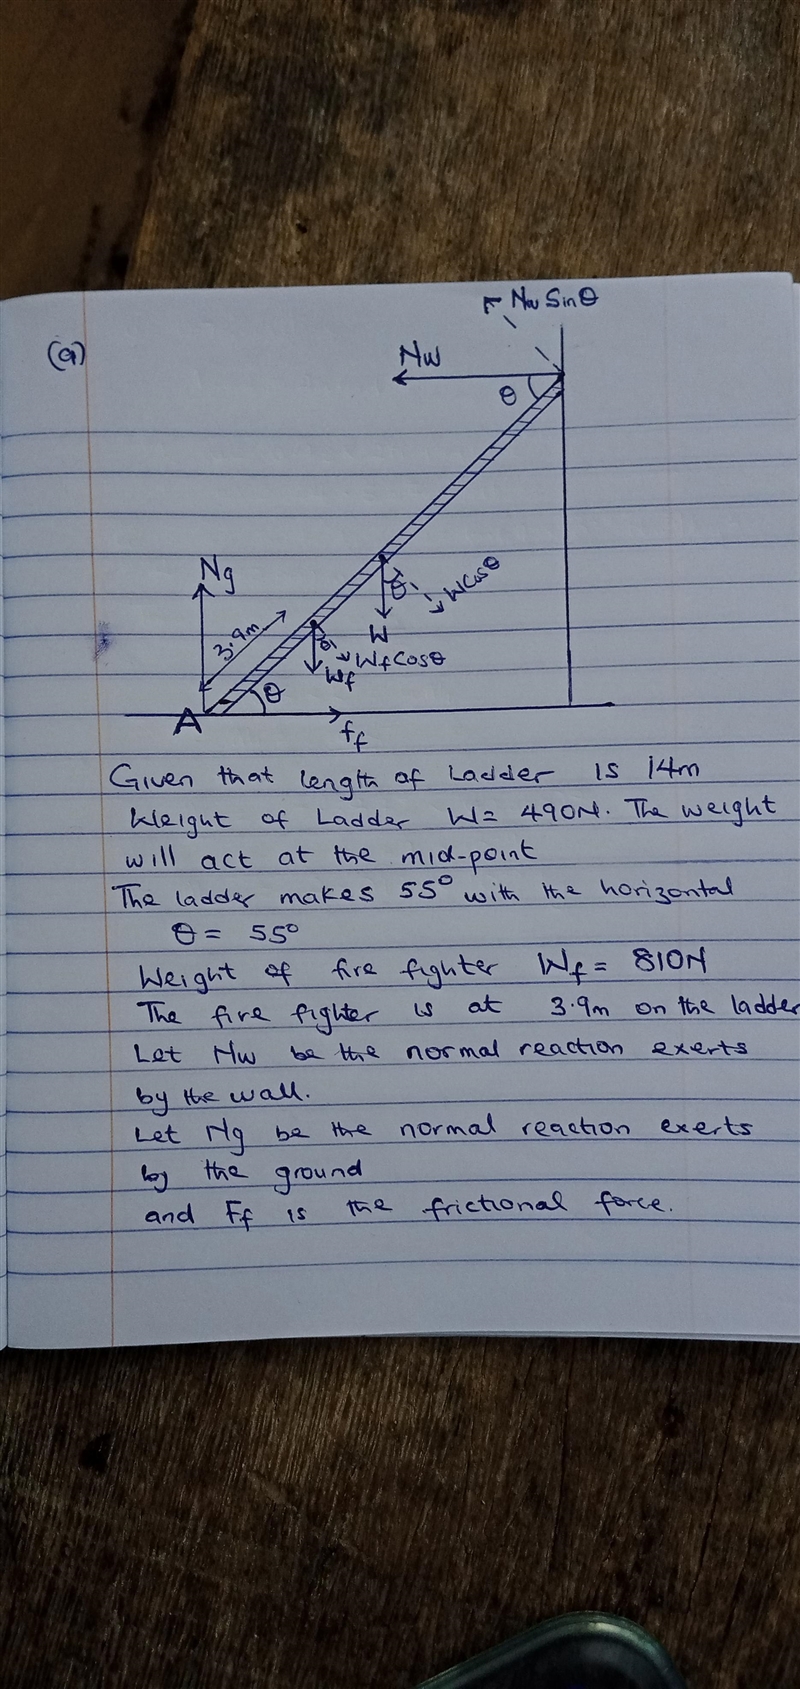 (a)
Nw Sinθ
Nw
θ
Ng
3.9m
θ
W Cosθ
W
θ
Wf Cosθ
Wf
θ
A
ff
Given that length of Ladder is 14m
Weight of Ladder W= 490N. The weight
will act at the mid-point
The ladder makes 55° with the horizontal
θ = 55°
Weight of fire fighter Wf = 810N
The fire fighter is at 3.9m on the ladder
Let Nw be the normal reaction exerts
by the wall.
Let Ng be the normal reaction exerts
by the ground
and Ff is the frictional force.